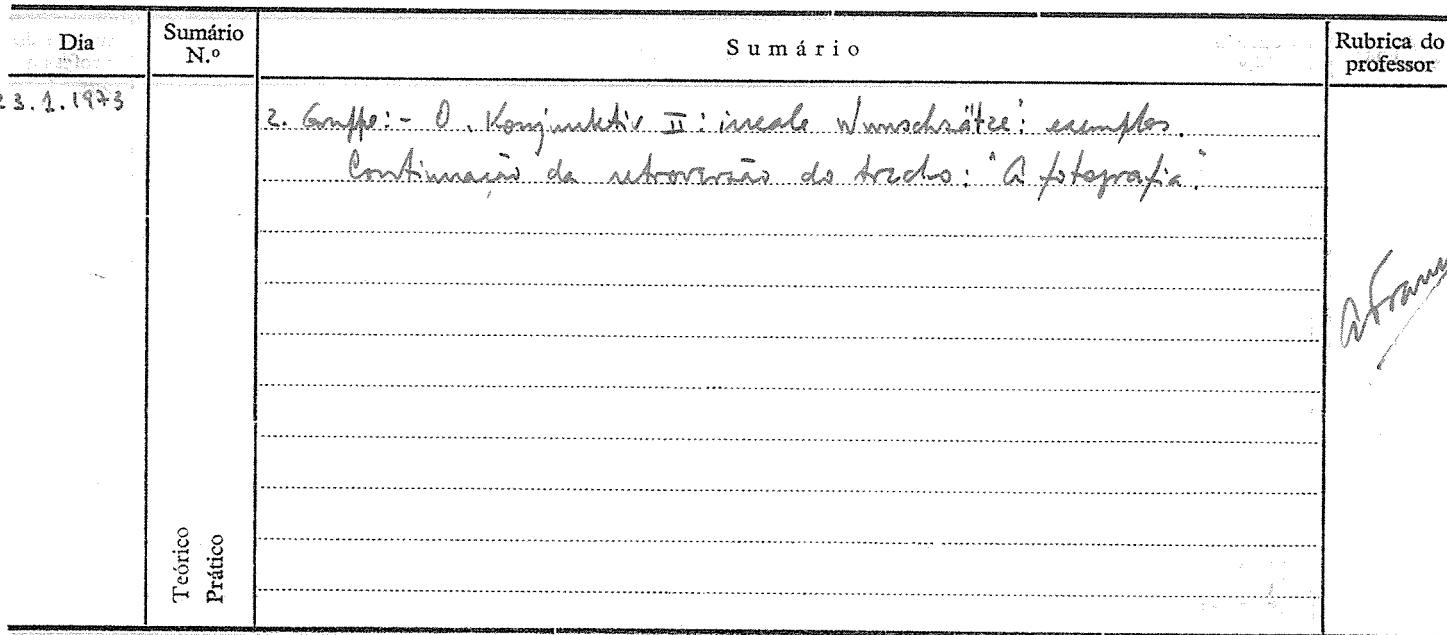 Dia
Sumário N.º
Sumário
Rubrica do professor
23.1.1973
2. Gruppe:- O Konjunktiv II: irreale Wunschsätze: exemplos.
Continuação da retroversão do trecho: "A fotografia".
Teórico
Prático